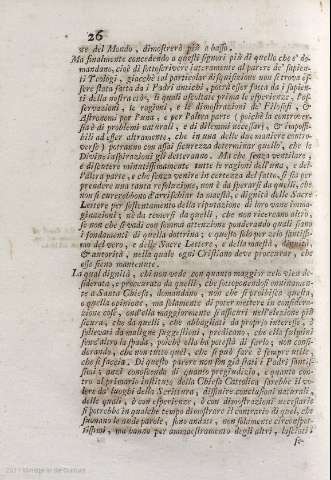 26
te del Mondo, dimostrerò più a basso.
Ma finalmente concedendo a questi signori più di quello che do-
mandano, cioè di sottoscrivere interamente al parere de' sapien-
ti Teologi, giacchè tal particolar disquisizione non si trova es-
sere stata fatta da i Padri antichi, potrà esser fatta da i sapien-
ti della nostra età, li quali ascoltate prima le esperienze, l'os-
servazioni, le ragioni, e le dimostrazioni de' Filosofi, &
Astronomi per l'una, e per l'altra parte (poichè la controver-
sia è di problemi naturali, e di dilemmi necessarj, & impossi-
bili ad esser altramente, che in una delle due maniere contro-
verse) potranno con assai sicurezza determinar quello, che le
Divine inspirazioni gli detteranno. Ma che senza ventilare,
e discutere minutissimamente tutte le ragioni dell'una, e del-
l'altra parte, e che senza venire in certezza del fatto, si sia per
prendere una tanta resoluzione, non è da sperarsi da quelli, che
non si curerebbono d'arrisicar la maestà, e dignità delle Sacre
Lettere per sostentamento della riputazione di loro vane imma-
ginazioni; nè da temersi da quelli, che non ricercano altro,
se non che si vada con somma attenzione ponderando quali siano
i fondamenti di questa dottrina; e questo solo per zelo santissi-
mo del vero, e delle Sacre Lettere, e della maestà, dignità,
& autorità, nella quale ogni Cristiano deve procurar, che
esse sieno mantenute.
La qual dignità, chi non vede con quanto maggior zelo vien de-
siderata, e procurata da quelli, che sottoponendosi onninamen-
te a Santa Chiesa, domandano, non che si proibisca questa,
o quella opinione, ma solamente di poter mettere in considera-
zione cose, ond'ella maggiormente si assicuri nell'elezione più
sicura; che da quelli, che abbagliati da proprio interesse, o
sollevati da maligne suggestioni, predicano, che ella fulmini
senz'altro la spada, poichè ella ha potestà di farlo; non consi-
derando, che non tutto quel, che si può fare è sempre utile,
che si faccia. Di questo parere non son già stati i Padri santis-
simi; anzi conoscendo di quanto pregiudizio, e quanto con-
tro al primario instituto della Chiesa Cattolica sarebbe il vo-
lere da' luoghi della Scrittura, diffinire conclusioni naturali,
delle quali, o con esperienze, o con dimostrazioni necessarie
si potrebbe in qualche tempo dimostrare il contrario di quel, che
suonano le nude parole, sono andati, non solamente circonspet-
tissimi, ma hanno per ammaestramento degli altri, lasciati i